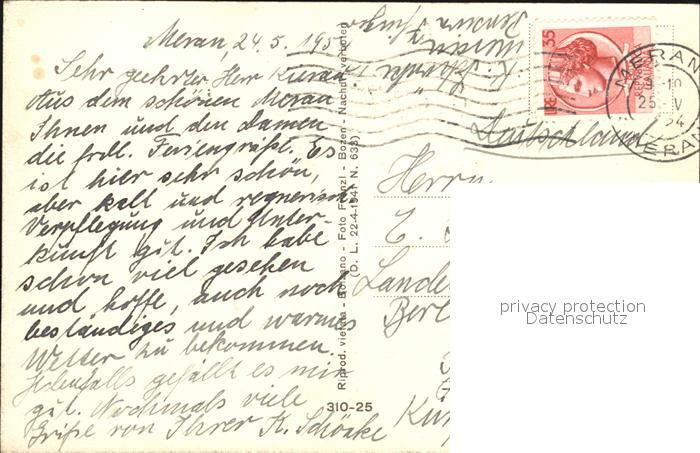 Meran, 24.5.1954
Sehr geehrter Herr
Aus dem schönen Meran
Ihnen und den Damen
die frdl. Feriengrüße. Es
ist hier sehr schön,
aber kalt und regnerisch
Verpflegung und Unter-
kunft gut. Ich habe
schon viel gesehen
und hoffe, auch noch
beständiges und warmes
Wetter zu bekommen.
Jedenfalls gefällt es mir
gut. Nochmals viele
Grüße von Ihrer K. Schönke
Riprod. vietata - Bolzano - Foto Fränzl - Bozen - Nachdr. verboten
(D. L. 22-4-1941 N. 633)
310-25
LIRE 35
MERANO
25 V
54
MERANO
Deutschland
Herrn
Lande
Berl
privacy protection
Datenschutz